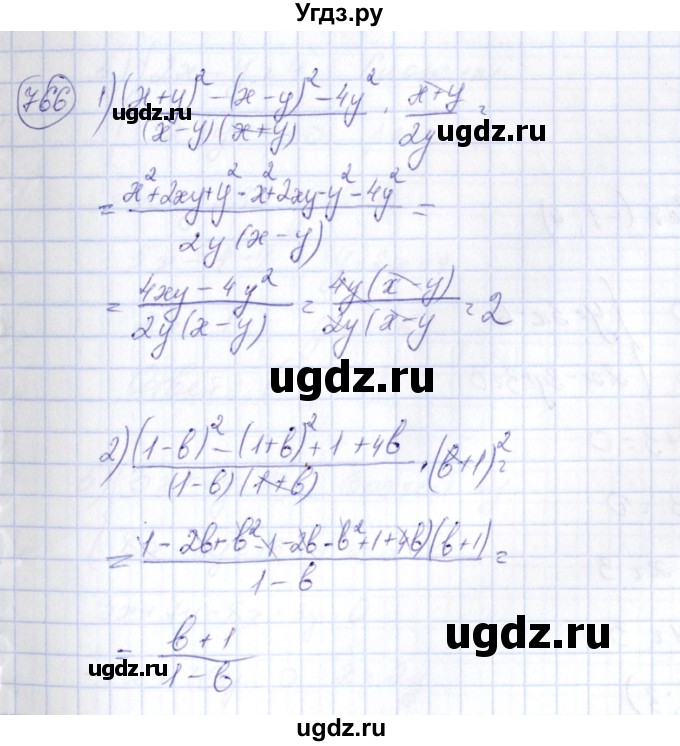 Угдз.ру
766 1) ((x+y)² - (x-y)² - 4y²)/((x-y)(x+y)) · (x+y)/2y =
= (x²+2xy+y² - x²+2xy-y² - 4y²)/(2y(x-y)) =
= (4xy - 4y²)/(2y(x-y)) = (4y(x-y))/(2y(x-y) = 2
ugdz.ru
ugdz.ru
2) ((1-b)² - (1+b)² + 1 + 4b)/((1-b)(1+b)) · (b+1)² =
= (1 - 2b + b² - 1 - 2b - b² + 1 + 4b)(b+1)/(1-b) =
= (b+1)/(1-b)
ugdz.ru
ugdz.ru
ugdz.ru